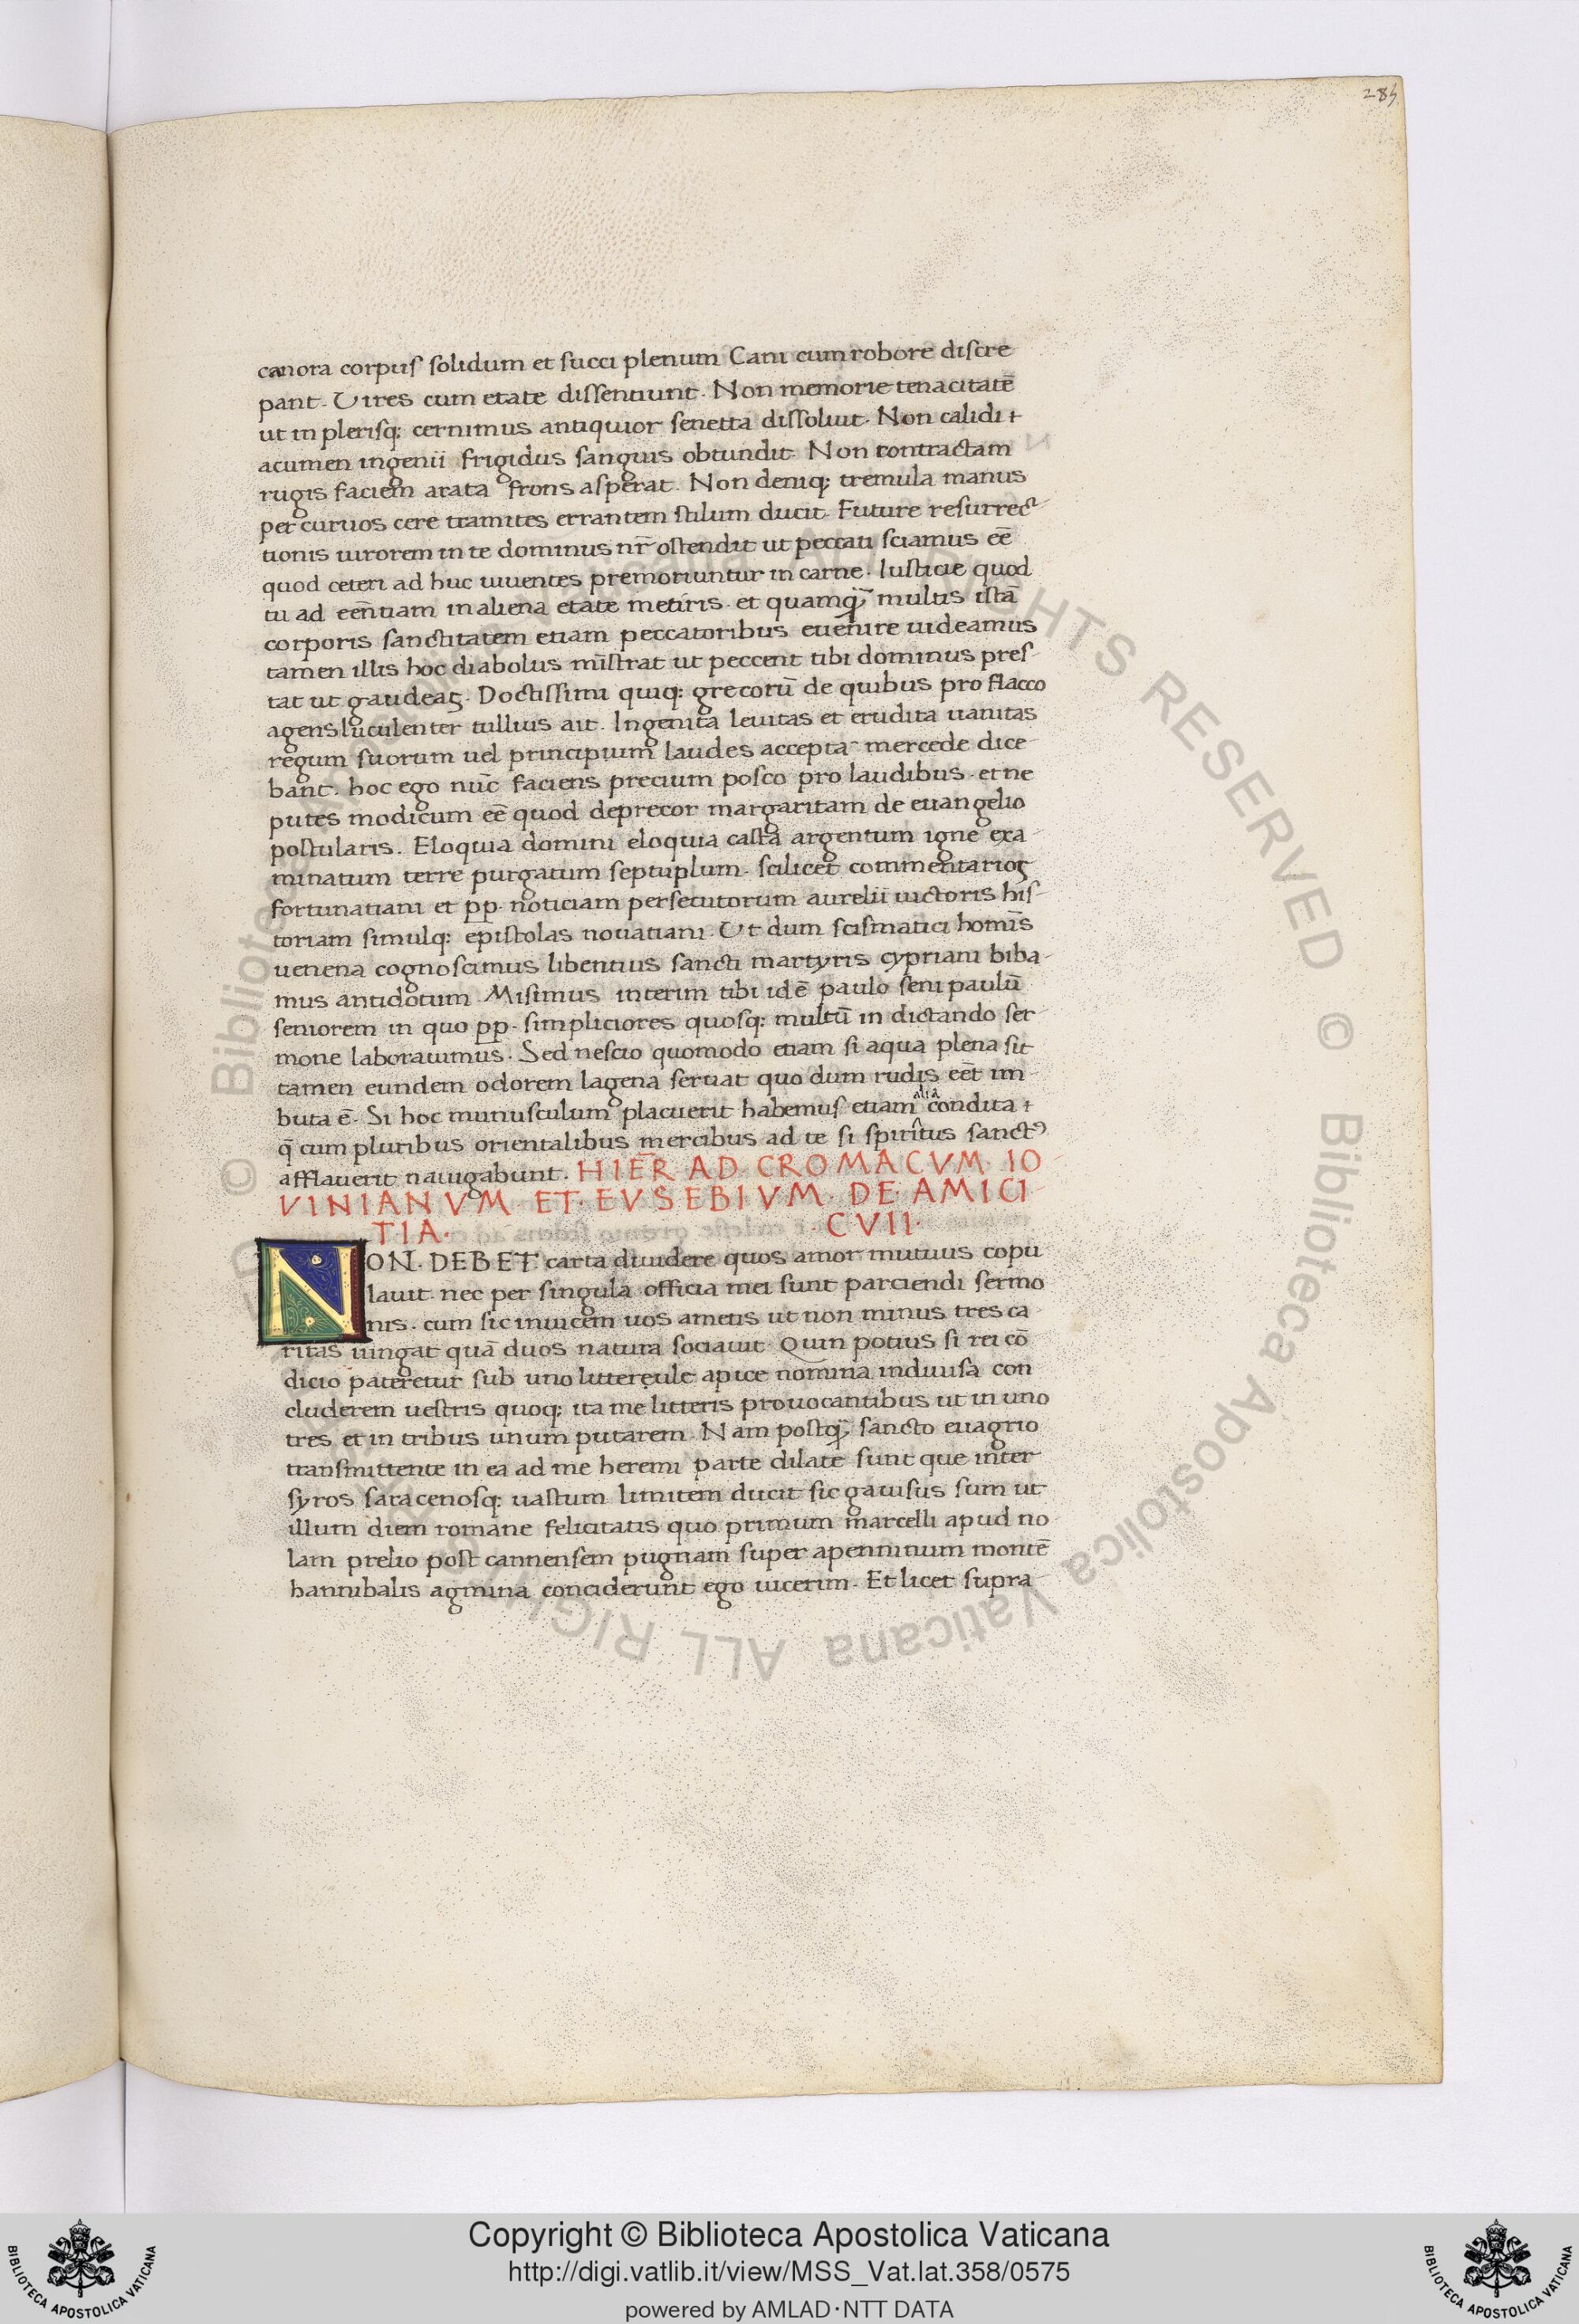 285
canora corpus solidum et succi plenum Cani cum robore discre
pant. Vires cum etate dissentiunt. Non memorie tenacitatē
ut in plerisq; cernimus antiquior senetta dissoluit. Non calidi +
acumen ingenii frigidus sanguis obtundit. Non contractam
rugis faciem arata frons asperat. Non deniq; tremula manus
per curuos cere tramites errantem stilum ducit. Future resurrec-
tionis uirorem in te dominus nr̄ ostendit ut peccati sciamus eē
quod ceteri ad huc uiuentes premoriuntur in carne. Iusticie quod
tu ad eēntiam in aliena etate metiris. et quamq̄ multis istā
corporis sanctitatem etiam peccatoribus euenire uideamus
tamen illis hoc diabolus mīstrat ut peccent tibi dominus pres-
tat ut gaudeas. Doctissimi quiq; grecorū de quibus pro flacco
agens luculenter tullius ait. Ingenita leuitas et erudita uanitas
regum suorum uel principium laudes accepta mercede dice-
bant. hoc ego nūc faciens precium posco pro laudibus. et ne
putes modicum eē quod deprecor margaritam de euangelio
postularis. Eloquia domini eloquia casta argentum igne exa-
minatum terre purgatum septuplum. scilicet commentarios
fortunatiani et pp. noticiam persecutorum aurelii uictoris his-
toriam simulq; epistolas nouatiani. Vt dum scismatici homīs
uenena cognoscimus libentius sancti martyris cypriani biba-
mus antidotum. Misimus interim tibi id ē paulo seni paulū
seniorem in quo pp. simpliciores quosq; multū in dictando ser-
mone laborauimus. Sed nescio quomodo etiam si aqua plena sit
tamen eundem odorem lagena seruat quo dum rudis eēt im-
buta ē. Si hoc munusculum placuerit habemus etiam alia condita +
q̄ cum pluribus orientalibus mercibus ad te si spiritus sanctꝰ
afflauerit nauigabunt. HIER̄ AD CROMACVM. IO
VINIANVM ET. EVSEBIVM. DE AMICI-
TIA. CVII.
NON. DEBET carta diuidere quos amor mutuus copu
lauit. nec per singula officia mei sunt parciendi sermo
nis. cum sic inuicem uos ametis ut non minus tres ca-
ritas iungat quā duos natura sociauit. Quin potius si rei cō
dicio pateretur sub uno litteręule apice nomina indiuisa con
cluderem uestris quoq; ita me litteris prouocantibus ut in uno
tres et in tribus unum putarem. Nam postq̄ sancto euagrio
transmittente in ea ad me heremi parte dilate sunt que inter
syros saracenosq; uastum limitem ducit sic gauisus sum ut
illum diem romane felicitatis quo primum marcelli apud no-
lam prelio post cannensem pugnam super apenninum montē
hannibalis agmina conciderunt ego uicerim. Et licet supra
© Biblioteca Apostolica Vaticana ALL RIGHTS RESERVED
© Biblioteca Apostolica Vaticana ALL RIGHTS RESERVED
Copyright © Biblioteca Apostolica Vaticana
http://digi.vatlib.it/view/MSS_Vat.lat.358/0575
powered by AMLAD·NTT DATA
BIBLIOTECA APOSTOLICA VATICANA
BIBLIOTECA APOSTOLICA VATICANA